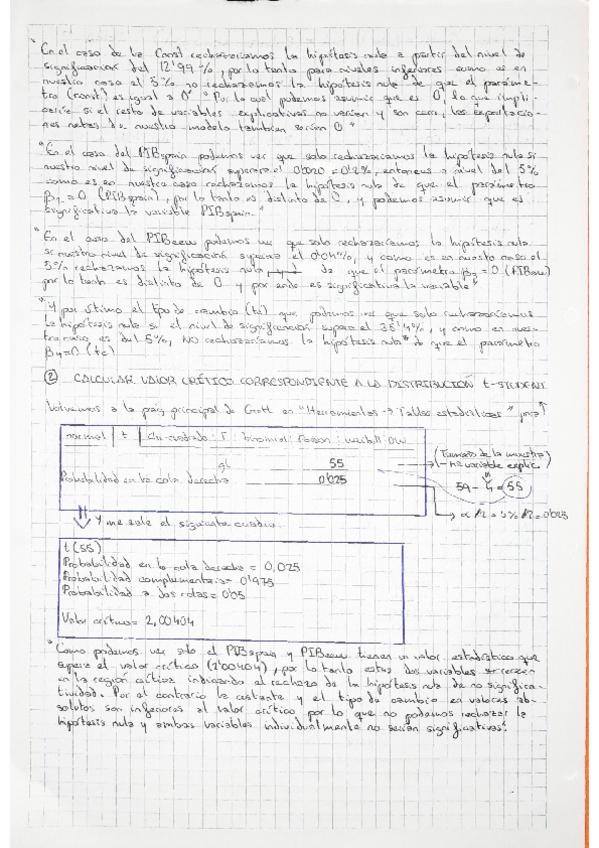 "En el caso de la Const rechazaríamos la hipótesis nula a partir del nivel de
significación del 12'99%, por lo tanto para niveles inferiores como es en
nuestro caso el 5% no rechazamos la hipótesis nula de que el paráme-
tro (const) es igual a 0" "Por lo cual podemos asumir que es 0, lo que impli-
caría si el resto de variables explicativas no varían y son cero, las exportacio-
nes netas de nuestro modelo también serían 0"
"En el caso del PIBspain podemos ver que solo rechazaríamos la hipótesis nula si
nuestro nivel de significación supera el 0'0020 = 0'2%, entonces a nivel del 5%
como es en nuestro caso rechazamos la hipótesis nula de que el parámetro
= 0 (PIBspain), por lo tanto es distinto de 0, y podemos asumir que es
significativa la variable PIBspain."
"En el caso del podemos ver que solo rechazaríamos la hipótesis nula
si nuestro nivel de significación supera el 0'04%, y como es en nuestro caso el
5% rechazamos la hipótesis nula de que el parámetro = 0
por lo tanto es distinto de 0 y por ende es significativa la variable"
"Y por último el tipo de cambio (tc) que podemos ver que solo rechazaríamos
la hipótesis nula si el nivel de significación supera el y como en nues-
tro caso es del 5%, NO rechazaríamos la hipótesis nula" de que el parámetro
β4=0 (tc)
② CALCULAR VALOR CRÍTICO CORRESPONDIENTE A LA DISTRIBUCIÓN t-STUDENT
Volvemos a la pág principal de Gretl en "Herramientas → Tablas estadísticas"
normal | t | Chi-cuadrado | F | binomial | Poisson | weibull | DW
gl 55
Probabilidad en la cola derecha 0'025
(Tamaño de la muestra)
- nº variable explic
59 - 4 = 55
α/2 = 5%/2 = 0'025
Y me sale el siguiente cuadro.
t(55)
Probabilidad en la cola derecha = 0,025
Probabilidad complementaria = 0'975
Probabilidad a dos colas = 0'05
Valor crítico = 2,00404
"Como podemos ver solo el PIBspain y tienen un valor estadístico que
supera el valor crítico por lo tanto estas dos variables
en la región crítica indicando el rechazo de la hipótesis nula de no significa-
tividad. Por el contrario la constante y el tipo de cambio en valores ab-
solutos son inferiores al valor crítico por lo que no podemos rechazar la
hipótesis nula y ambas variables individualmente no serían significativas."